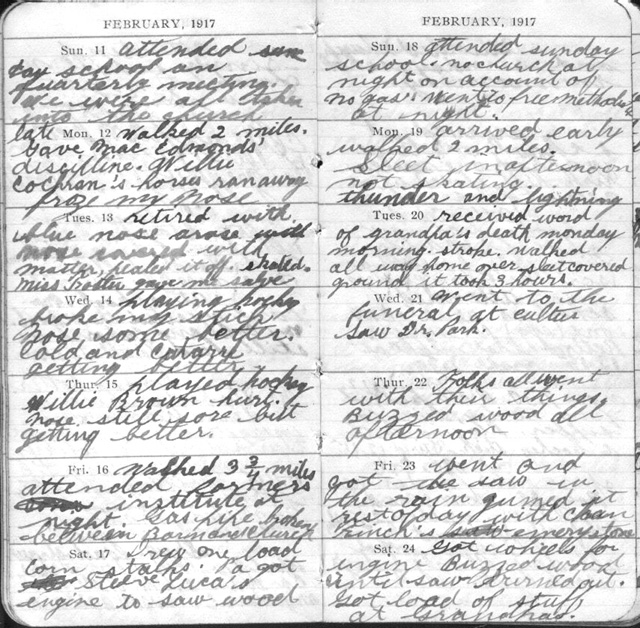 FEBRUARY, 1917
Sun. 11 attended sun
day school an
quarterly meeting.
We were all taken
into the church
late Mon. 12 Walked 2 miles.
Gave Mac Edmonds'
discipline. Willie
Cochran's horses ran away
froze my nose
Tues. 13 retired with
blue nose arose with
nose covered with
matter, pealed it off. skated.
Miss Troster gave me salve
Wed. 14 playing hockey
broke my stick
nose some better.
cold and catarrh
getting better
Thur. 15 played hockey
Willie Brown hurt.
nose still sore but
getting better.
Fri. 16 Walked 3 3/4 miles
attended farmers
institute at
night. Gas pipe broken
between Barn and church
Sat. 17 drew one load
corn stalks. Pa got
Steeve Lucas
engine to saw wood
FEBRUARY, 1917
Sun. 18 attended sunday
school. no church at
night on account of
no gas. Went to free methodist
at night.
Mon. 19 arrived early
walked 2 miles.
Sleet in afternoon
not skating.
thunder and lightning
Tues. 20 received word
of grandpa's death monday
morning. stroke. Walked
all way home over sleet covered
ground it took 3 hours.
Wed. 21 Went to the
funeral at
saw Dr. Park.
Thur. 22 Folks all went
with their things.
Buzzed wood all
afternoon
Fri. 23 went and
got the saw in
the rain gumed it
rest of day with
Finch's emery stone
Sat. 24 Got wheels for
engine Buzzed wood
until saw
Got load of stuff
at Grandpas.